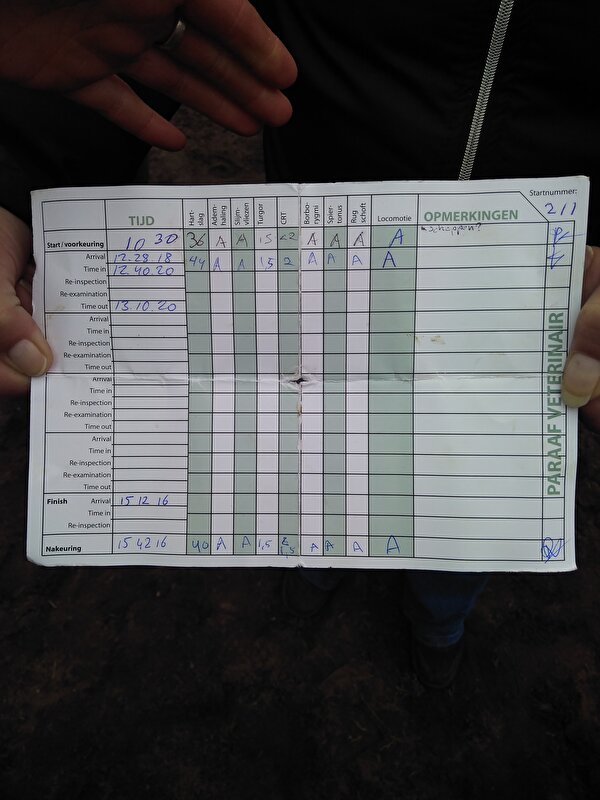 Startnummer:
211
TIJD Hart-slag Adem-haling Slijm-vliezen Turgor CRT Borbo-rygmi Spier-tonus Rug schoft Locomotie OPMERKINGEN
Start / voorkeuring 10 30 36 A A 1,5 <2 A A A A
Arrival 12.28.18 44 A A 1,5 2 A A A A
Time in 12.40.20
Re-inspection
Re-examination
Time out 13.10.20
Arrival
Time in
Re-inspection
Re-examination
Time out
Arrival
Time in
Re-inspection
Re-examination
Time out
Arrival
Time in
Re-inspection
Re-examination
Time out
Finish Arrival 15 12 16
Time in
Re-inspection
Nakeuring 15 42 16 40 A A 1,5 A A A A
PARAAF VETERINAIR